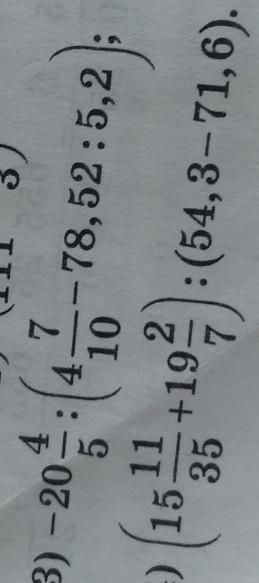 3) −20 4/5 : (4 7/10 − 78,52 : 5,2);
(15 11/35 + 19 2/7) : (54,3 − 71,6).